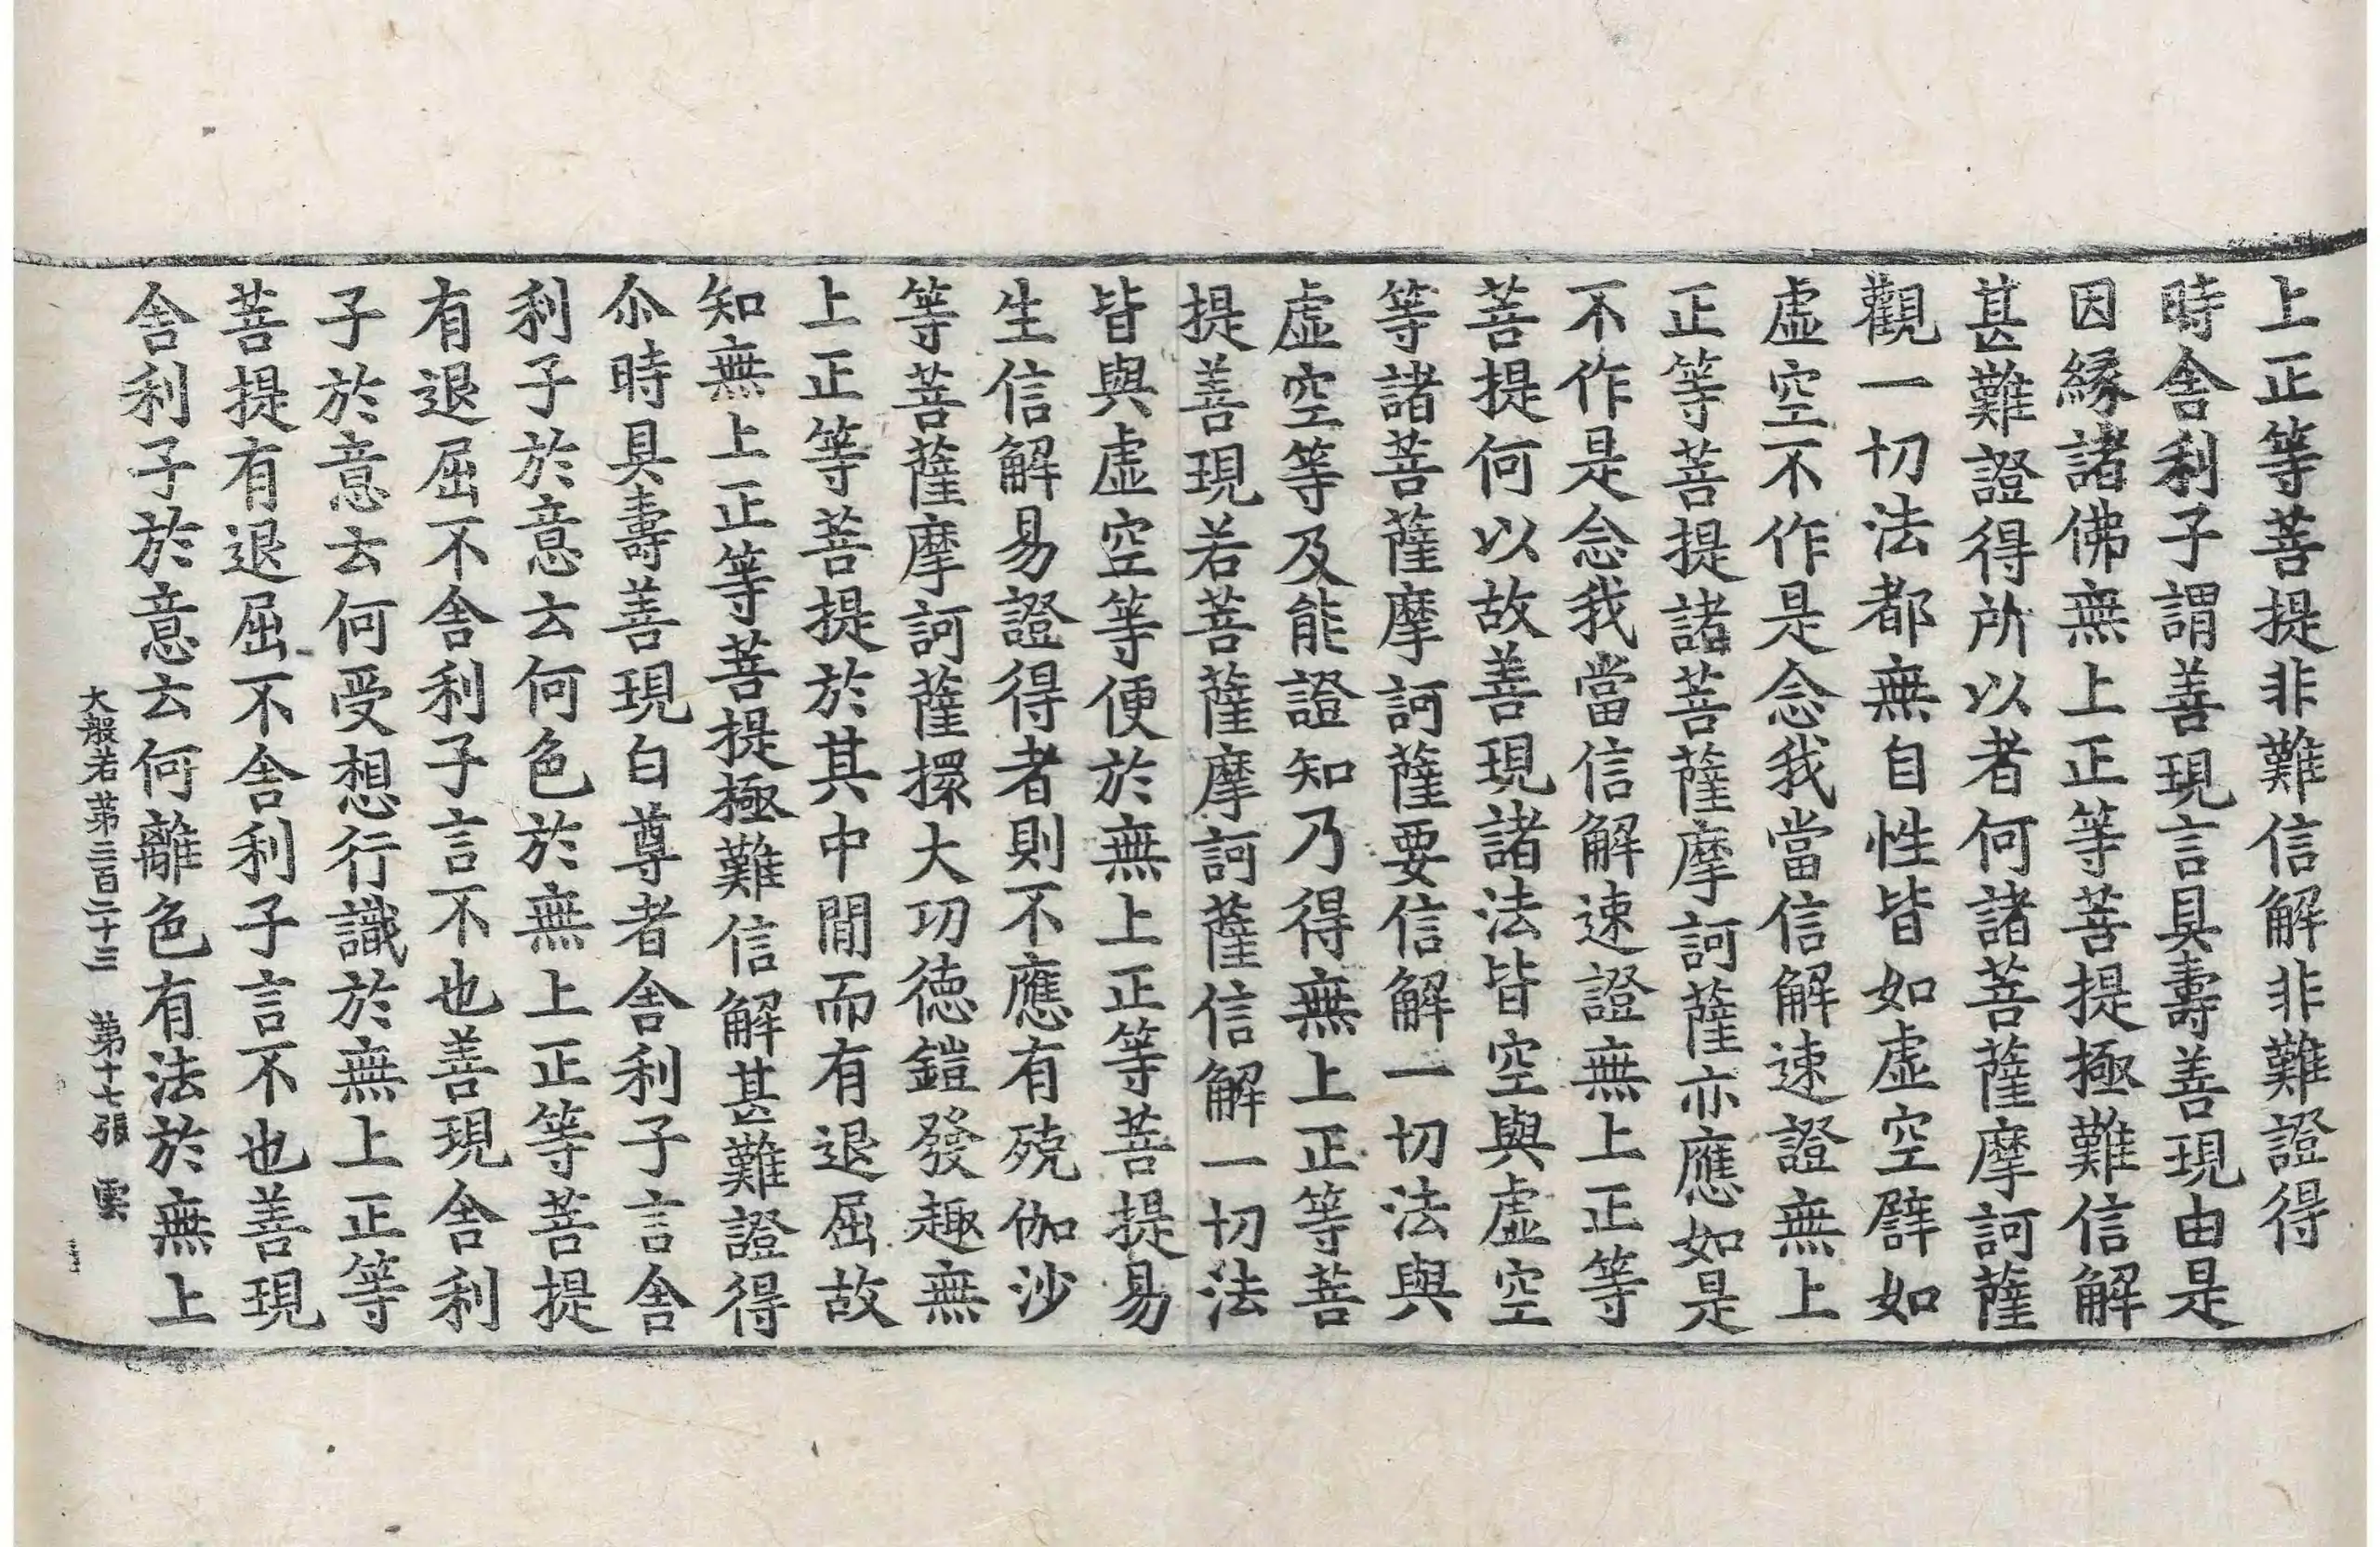 上正等菩提非難信解非難證得
時舍利子謂善現言具壽善現由是
因緣諸佛無上正等菩提極難信解
甚難證得所以者何諸菩薩摩訶薩
觀一切法都無自性皆如虛空譬如
虛空不作是念我當信解速證無上
正等菩提諸菩薩摩訶薩亦應如是
不作是念我當信解速證無上正等
菩提何以故善現諸法皆空與虛空
等諸菩薩摩訶薩要信解一切法與
虛空等及能證知乃得無上正等菩
提善現若菩薩摩訶薩信解一切法
皆與虛空等便於無上正等菩提易
生信解易證得者則不應有殑伽沙
等菩薩摩訶薩擐大功德鎧發趣無
上正等菩提於其中閒而有退屈故
知無上正等菩提極難信解甚難證得
尒時具壽善現白尊者舍利子言舍
利子於意云何色於無上正等菩提
有退屈不舍利子言不也善現舍利
子於意云何受想行識於無上正等
菩提有退屈不舍利子言不也善現
舍利子於意云何離色有法於無上
大般若第三百二十三 第十七張 雲